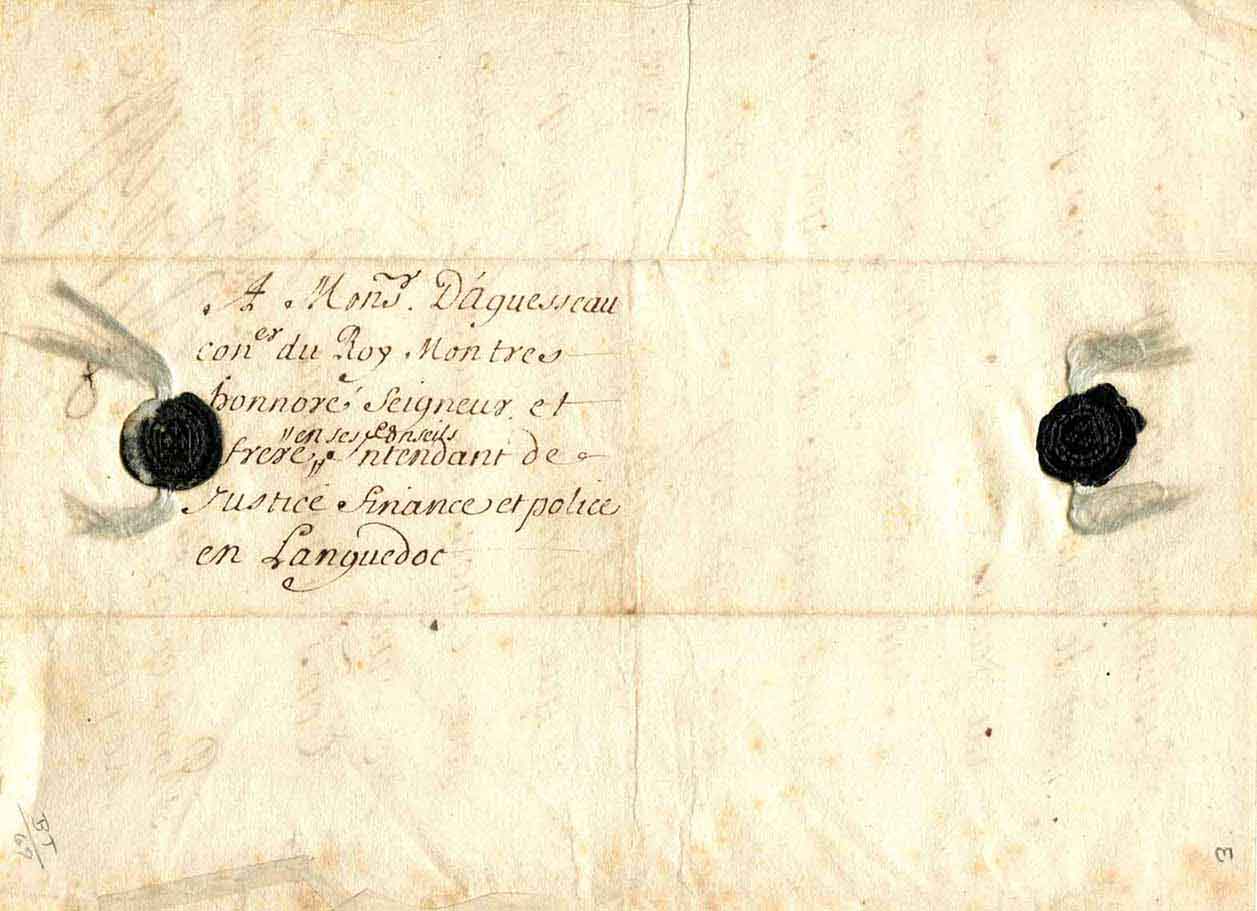 A Monsr. Dáguesseau
coner du Roy Montres
honnoré Seigneur et
"en ses conseils
frere,, Intendant de
Justice finance et police
en Languedoc
BT
69
3